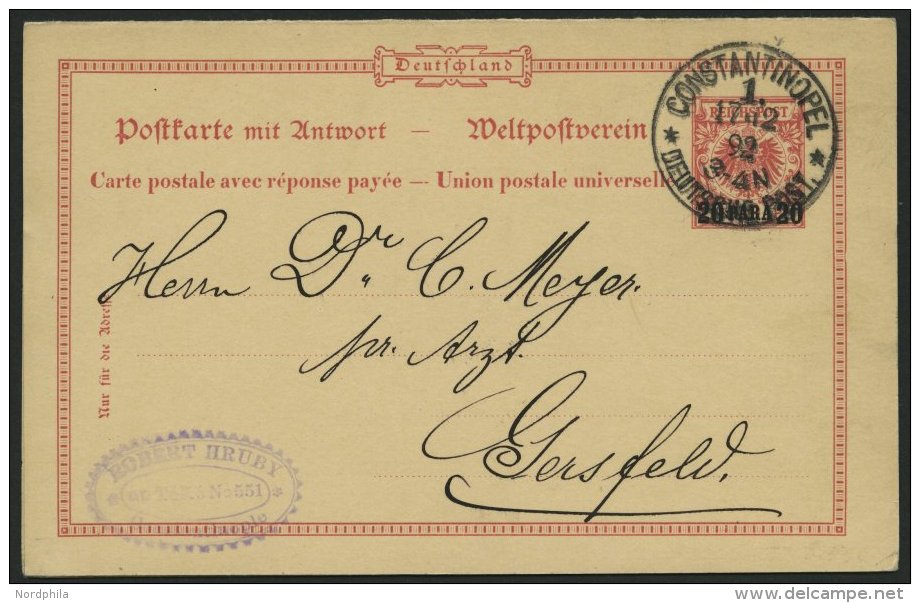 Deutschland
Postkarte mit Antwort — Weltpostverein
Carte postale avec réponse payée — Union postale universelle
CONSTANTINOPEL
1.
17 12
92
3-4N
* DEUTSCHE POST. *
REICHSPOST
20 PARA 20
Herrn Dr. C. Meyer.
pr. Arzt.
Gersfeld.
Nur für die Adresse
ROBERT HRUBY
Téké No 551
Nordphila
delcampe.net